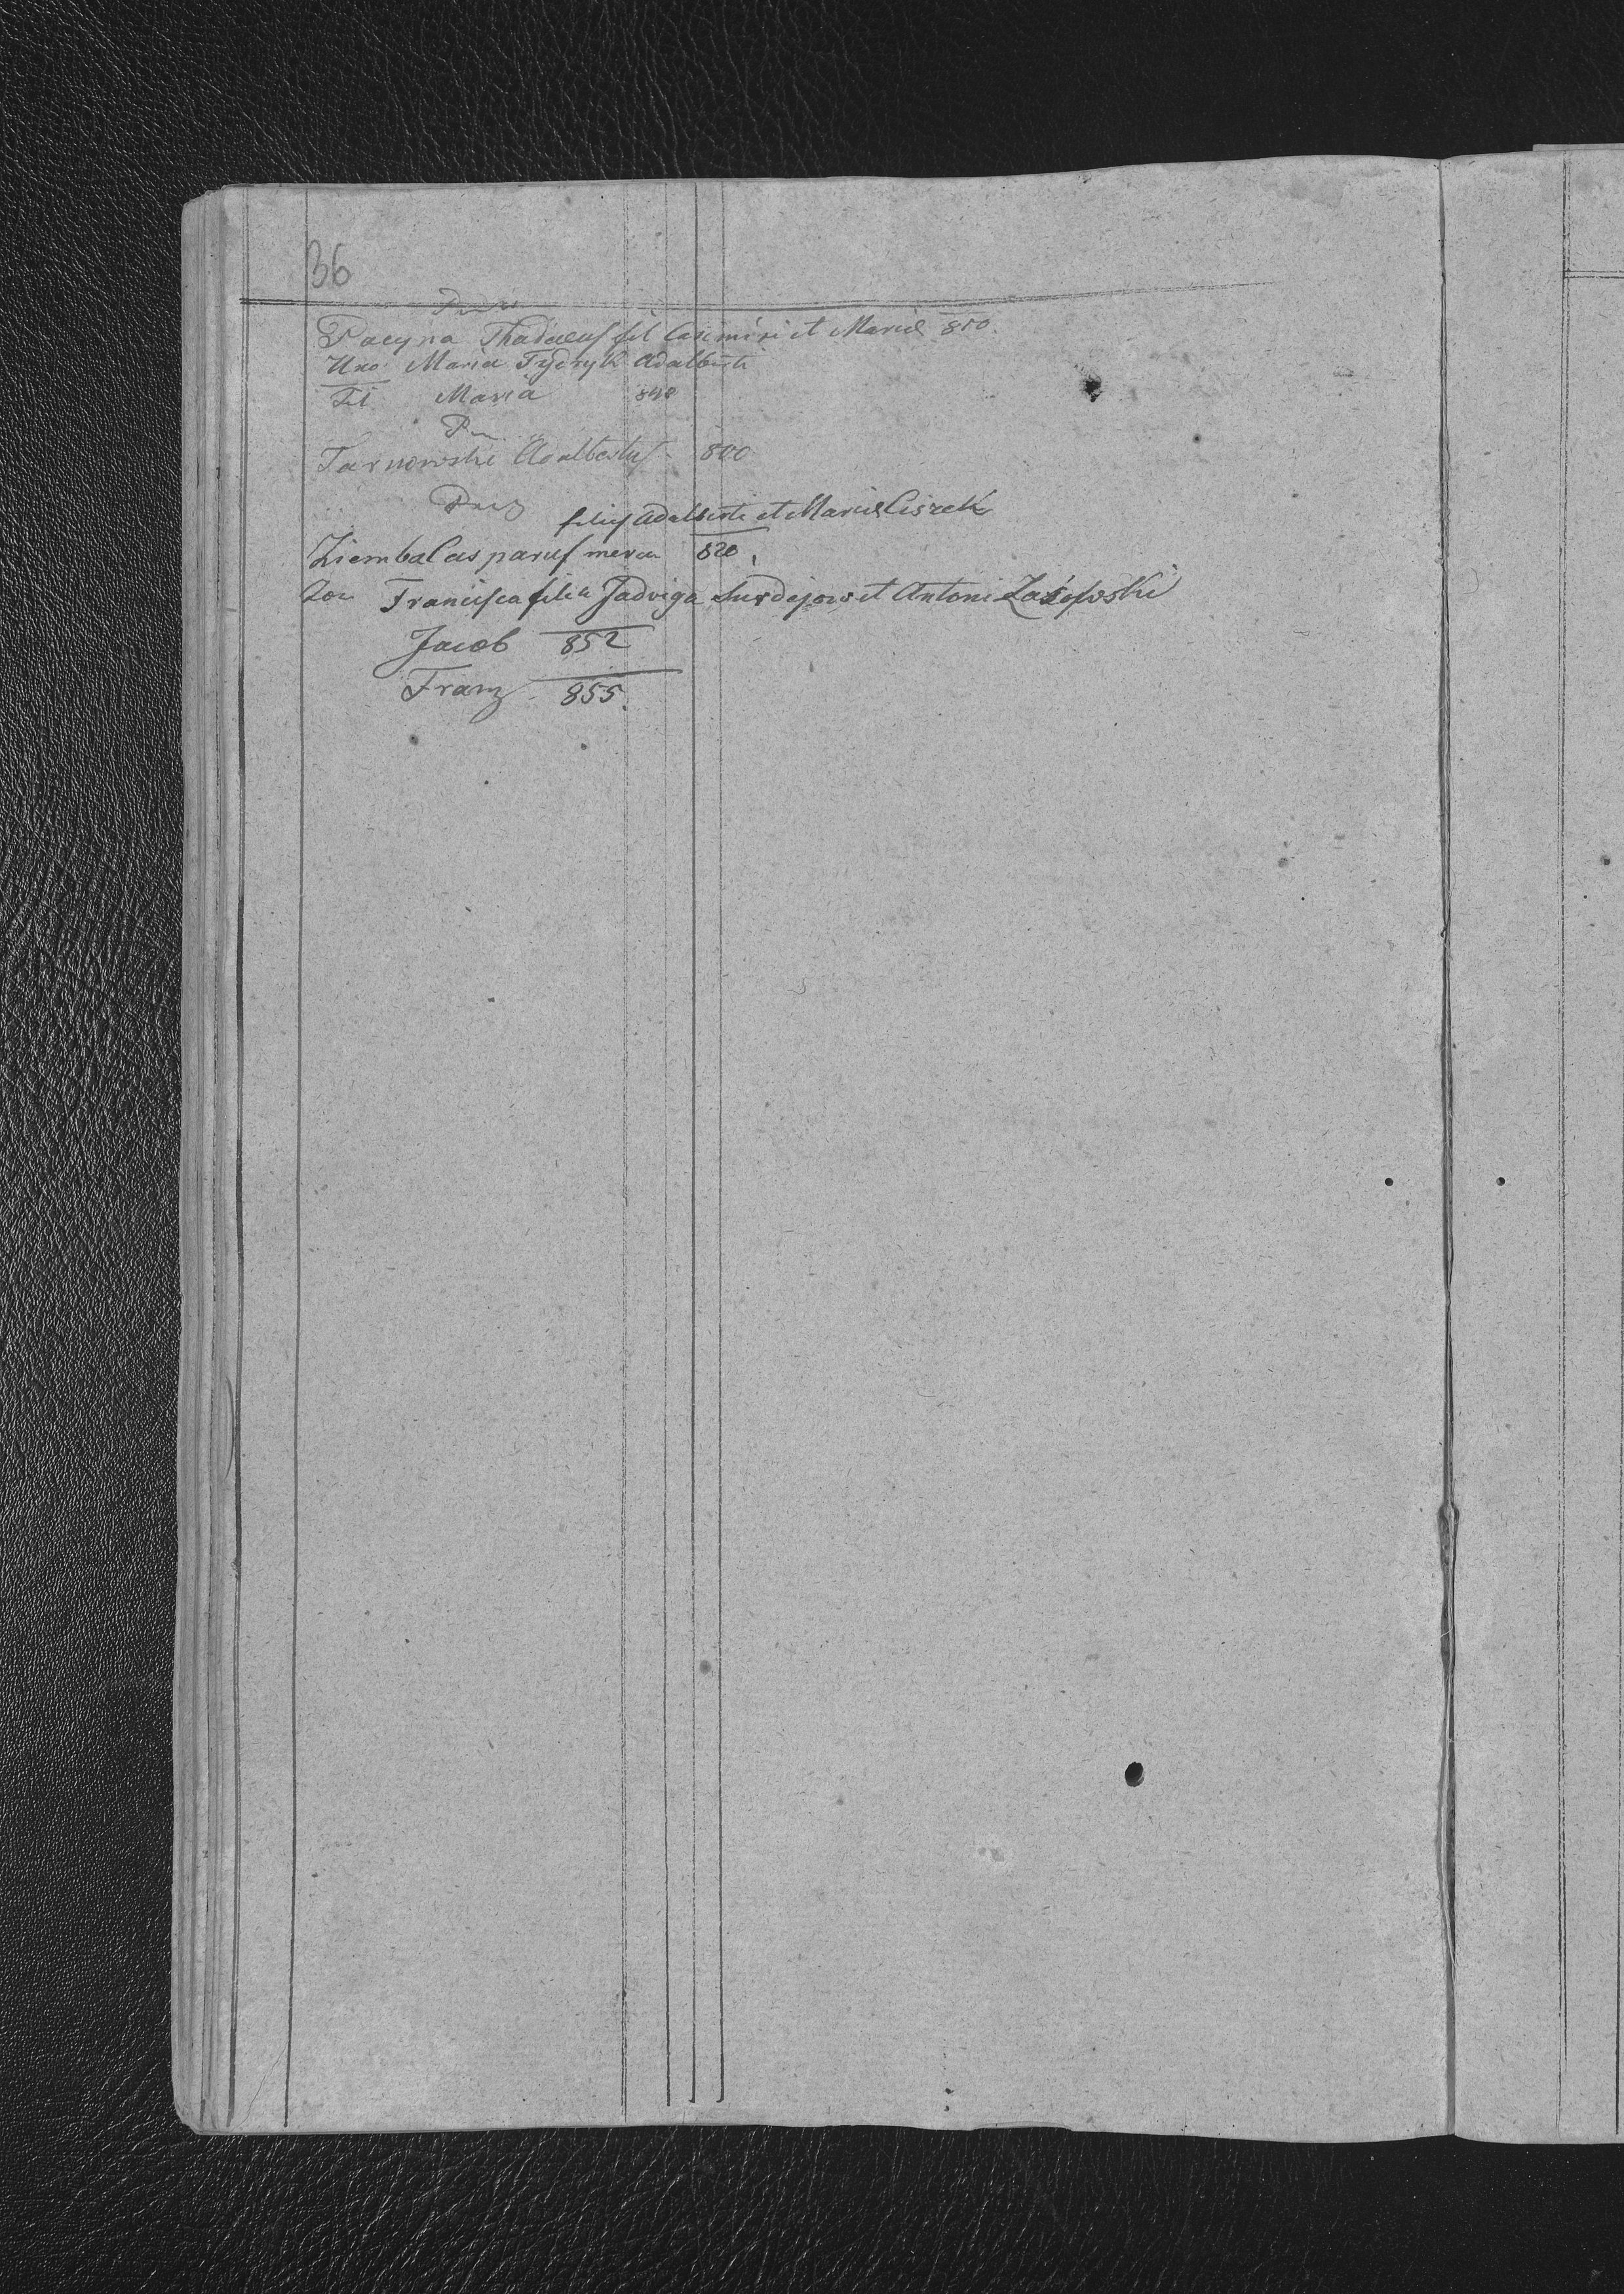 36
Pacyna Thadaeus fil Casimiri et Mariae 850.
Uxo Maria Fydryk Adalberti
Fil Maria 848
Tarnowski Adalbertus 800
filius Adalberti et Mariae Ciszek
Ziemba Casparus 820.
Francisca filia Jadviga Surdejow et Antoni
Jacob 852
Franz 855.